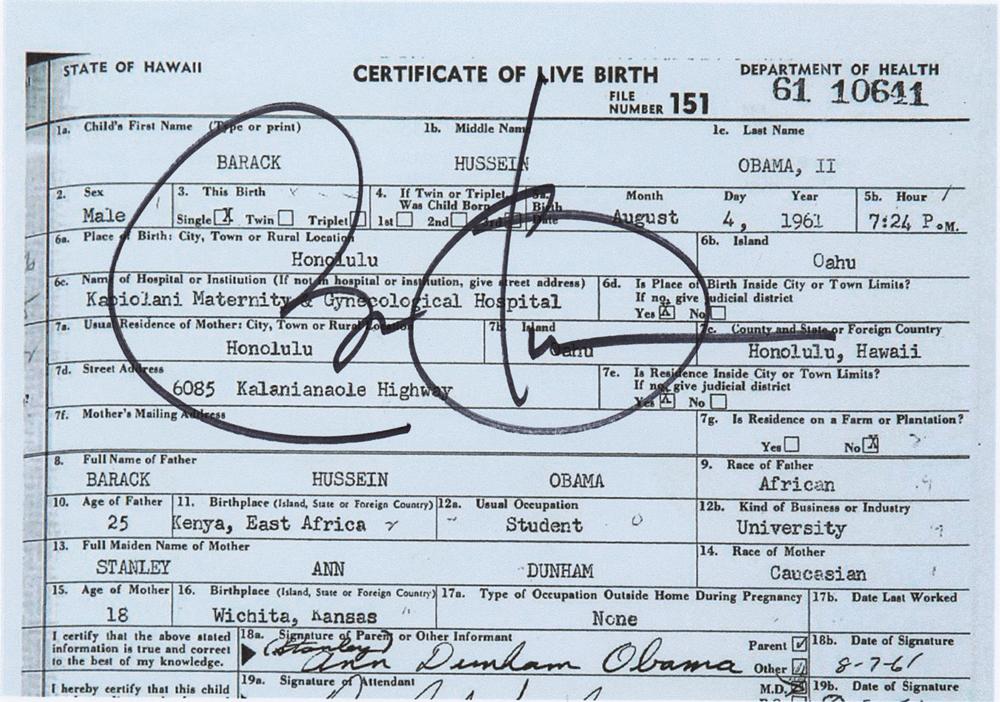 STATE OF HAWAII
CERTIFICATE OF LIVE BIRTH
DEPARTMENT OF HEALTH
FILE NUMBER 151
61 10641
1a. Child's First Name (Type or print)
1b. Middle Name
1c. Last Name
BARACK
HUSSEIN
OBAMA, II
2. Sex
Male
3. This Birth
Single X Twin Triplet
4. If Twin or Triplet,
Was Child Born
1st 2nd 3rd
5a. Birth Date
Month Day Year
August 4, 1961
5b. Hour
7:24 P.M.
6a. Place of Birth: City, Town or Rural Location
Honolulu
6b. Island
Oahu
6c. Name of Hospital or Institution (If not in hospital or institution, give street address)
Kapiolani Maternity & Gynecological Hospital
6d. Is Place of Birth Inside City or Town Limits?
If no, give judicial district
Yes X No
7a. Usual Residence of Mother: City, Town or Rural Location
Honolulu
7b. Island
Oahu
7c. County and State or Foreign Country
Honolulu, Hawaii
7d. Street Address
6085 Kalanianaole Highway
7e. Is Residence Inside City or Town Limits?
If no, give judicial district
Yes X No
7f. Mother's Mailing Address
7g. Is Residence on a Farm or Plantation?
Yes No X
8. Full Name of Father
BARACK HUSSEIN OBAMA
9. Race of Father
African
10. Age of Father
25
11. Birthplace (Island, State or Foreign Country)
Kenya, East Africa
12a. Usual Occupation
Student
12b. Kind of Business or Industry
University
13. Full Maiden Name of Mother
STANLEY ANN DUNHAM
14. Race of Mother
Caucasian
15. Age of Mother
18
16. Birthplace (Island, State or Foreign Country)
Wichita, Kansas
17a. Type of Occupation Outside Home During Pregnancy
None
17b. Date Last Worked
I certify that the above stated
information is true and correct
to the best of my knowledge.
18a. Signature of Parent or Other Informant
(Stanley)
Ann Dunham Obama
Parent
Other
18b. Date of Signature
8-7-61
I hereby certify that this child
19a. Signature of Attendant
M.D.
19b. Date of Signature